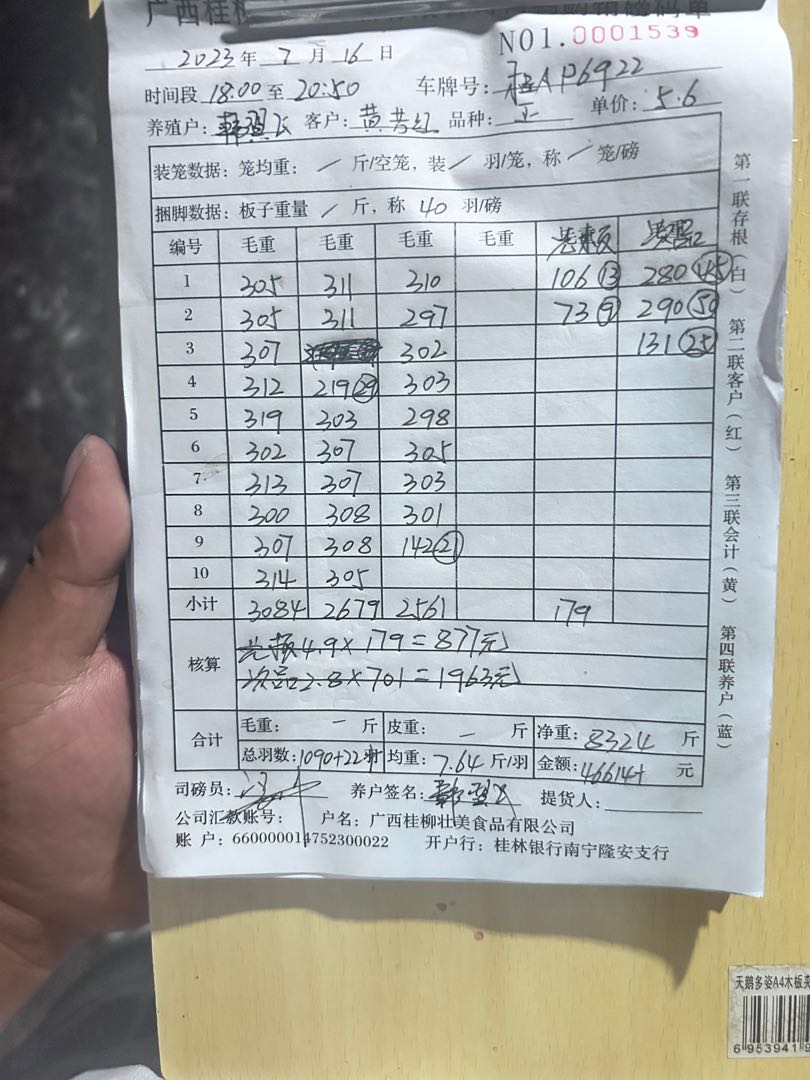 NO1.0001539
2023年7月16日
时间段 18:00 至 20:50 车牌号: AP6922
养殖户: 客户: 黄 红 品种: 正 单价: 5.6
装笼数据: 笼均重: / 斤/空笼, 装 / 羽/笼, 称 / 笼/磅
捆脚数据: 板子重量 / 斤, 称 40 羽/磅
编号 毛重 毛重 毛重 毛重
1 305 311 310 106 (13) 280 (45)
2 305 311 297 73 (9) 290 (50)
3 307 302 131 (25)
4 312 219 (29) 303
5 319 303 298
6 302 307 305
7 313 307 303
8 300 308 301
9 307 308 142 (21)
10 314 305
小计 3084 2679 2561 179
核算 4.9×179=877元
次品2.8×701=1963元
合计 毛重: — 斤 皮重: — 斤 净重: 8324 斤
总羽数: 1090+22 均重: 7.64 斤/羽 金额: 46614 元
司磅员: 养户签名: 提货人:
公司汇款账号: 户名: 广西桂柳壮美食品有限公司
账 户: 660000014752300022 开户行: 桂林银行南宁隆安支行
第一联存根(白) 第二联客户(红) 第三联会计(黄) 第四联养户(蓝)
天鹅多姿A4木板夹
6 953941